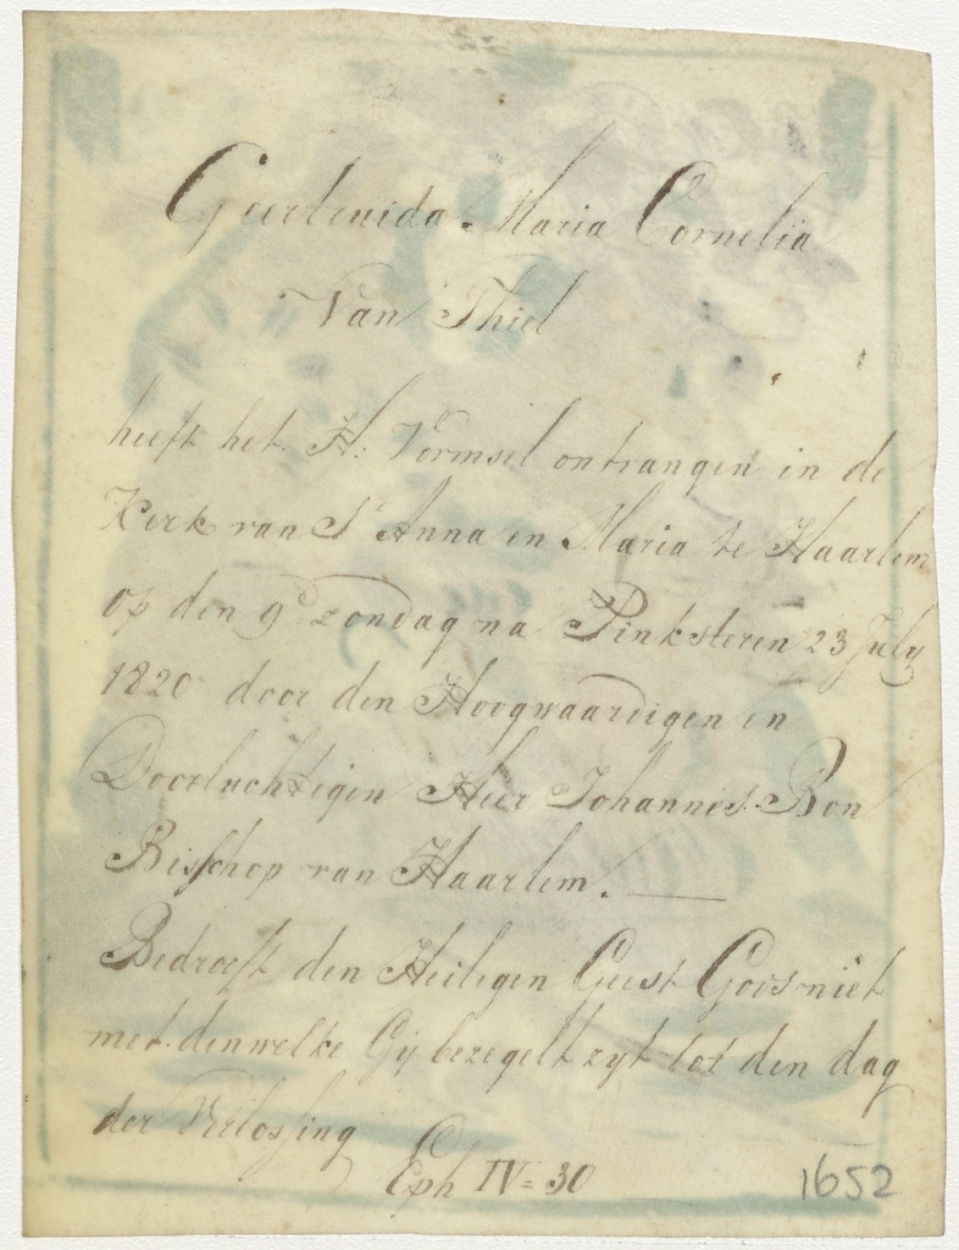 Geertruida Maria Cornelia
Van Thiel
heeft het H: Vormsel ontvangen in de
Kerk van St Anna en Maria te Haarlem
op den 9e zondag na Pinksteren 23 July
1820 door den Hoogwaardigen en
Doorluchtigen Heer Johannes Bon
Bisschop van Haarlem.
Bedroeft den Heiligen Geest Gods niet
met denwelke Gy bezegelt zyt tot den dag
der Verlossing
Eph IV = 30
1652